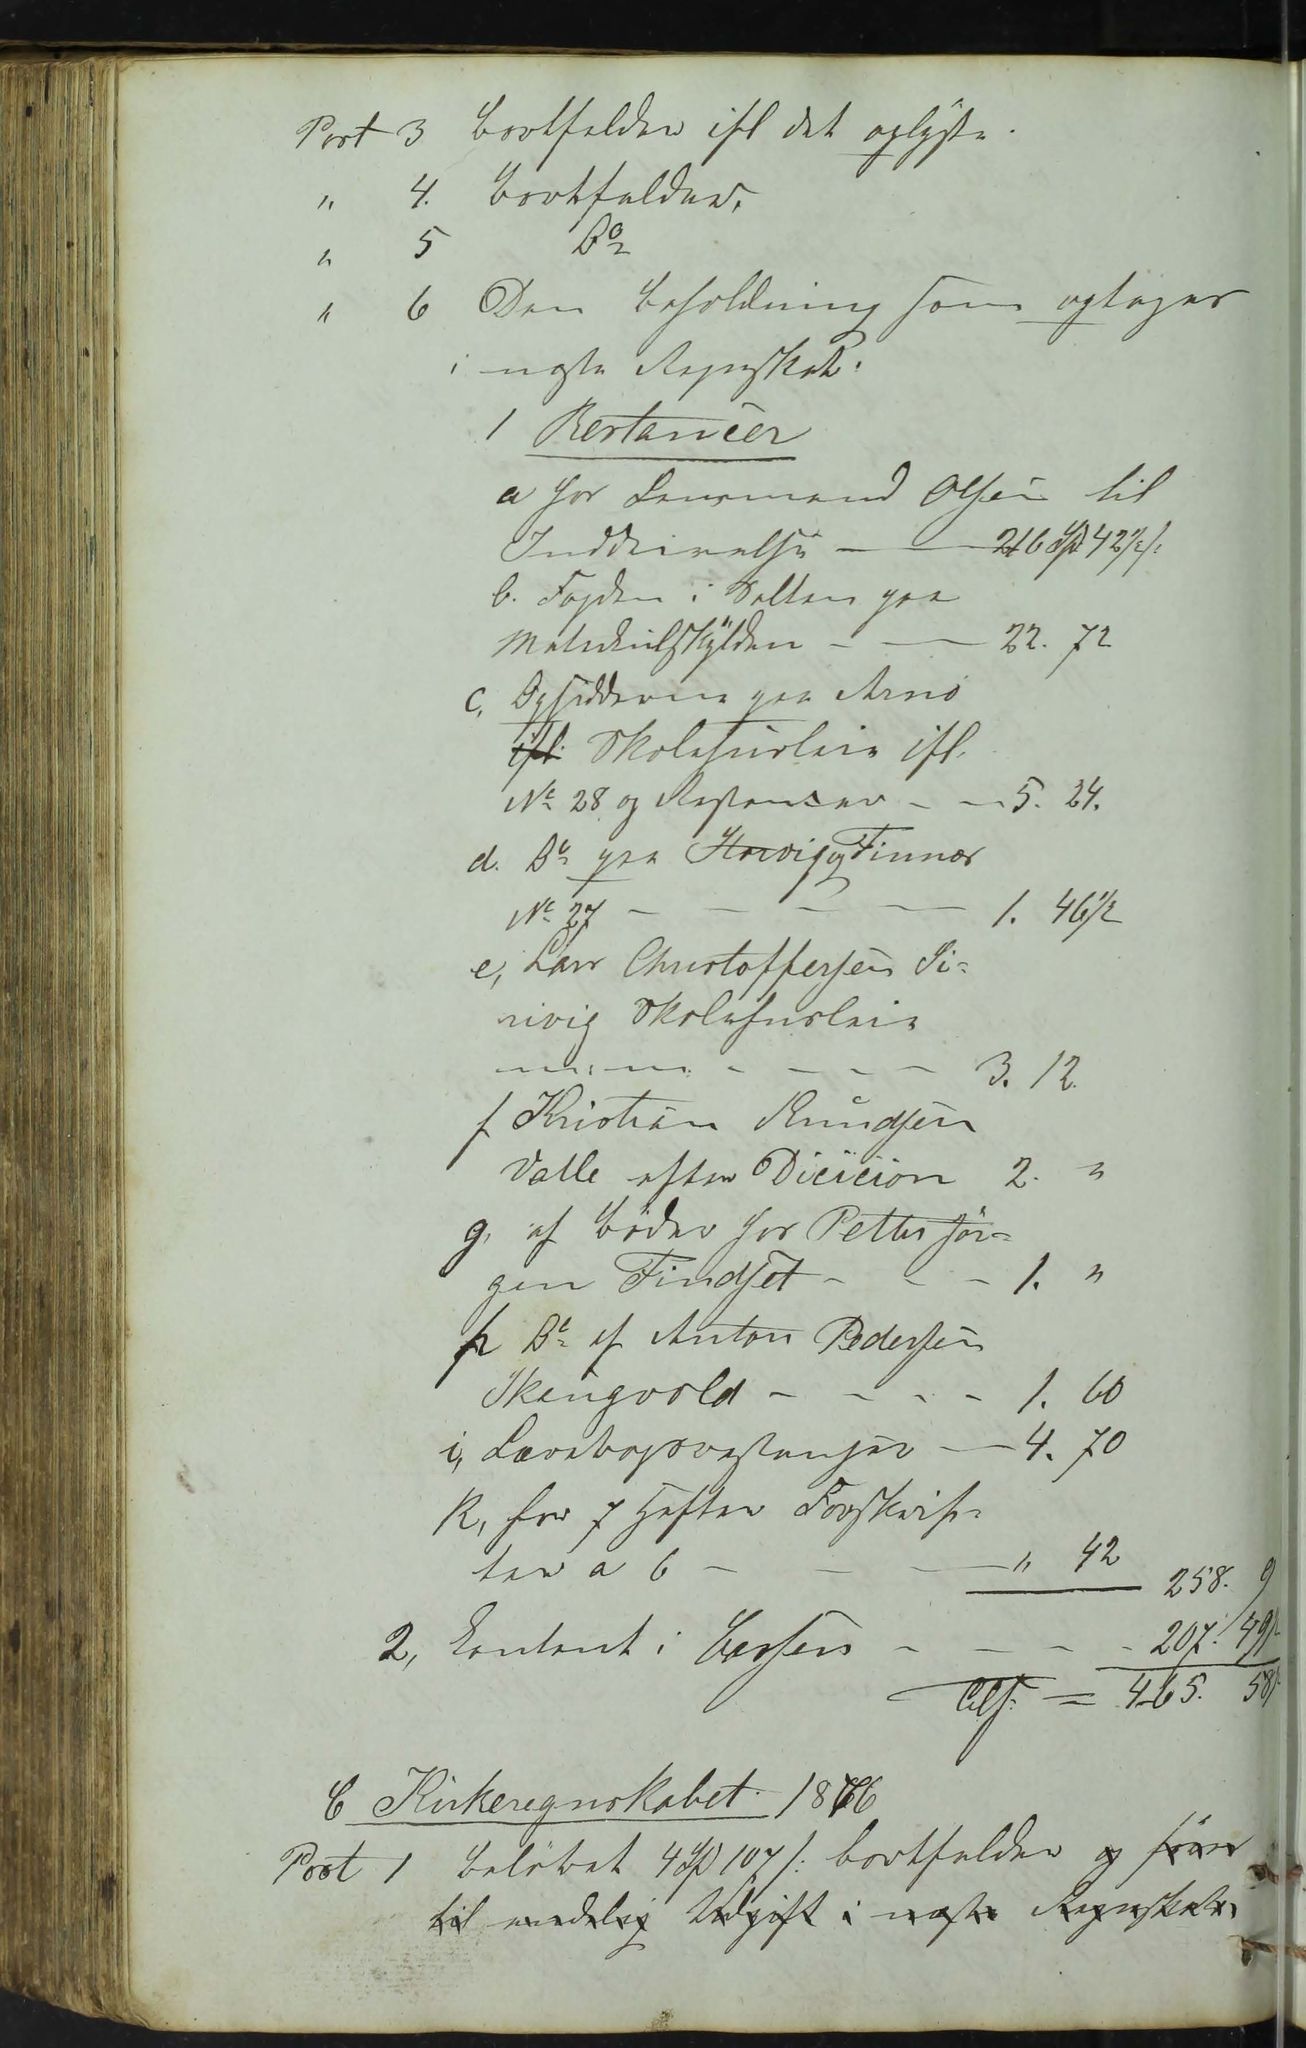 Post 3 bortfalder ifl det oplyste.
" 4. bortfalder.
" 5 Do
" 6 Den Beholdning som optages
i næste Regnskab:
1 Restancer
a hos Lensmand Olsen til
Inddrivelse — 216 Spd 42½ s:
b. Fogden i Salten paa
Matrikulskylden — 22. 72
c, Opsidderne paa Arnö
ifl: Skolehusleie ifl.
No 28 og Restancer — 5. 24.
d. Do paa og Finnes
No 27 — 1. 46½
e, Lars Christoffersen Si-
rivig Skolehusleie
— 3. 12.
f Kristian Knudsen
Valle efter Dicicion 2. "
g, af Böder hos Petter Jör-
gen Findset — 1. "
h Do af Anton Pedersen
Skaugvold — 1. 60
i, Lærebogsrestanser — 4. 70
k, for 7 Hefter Forskrif-
ter a 6 — " 42
258. 9
2, Contant i Cassen — 207. 49
Tils: = 465. 58
C Kirkeregnskabet 1866
Post 1 Belöbet 4 Spd 107 s: bortfalder og föres
til endelig Udgift i næste Regnskab.